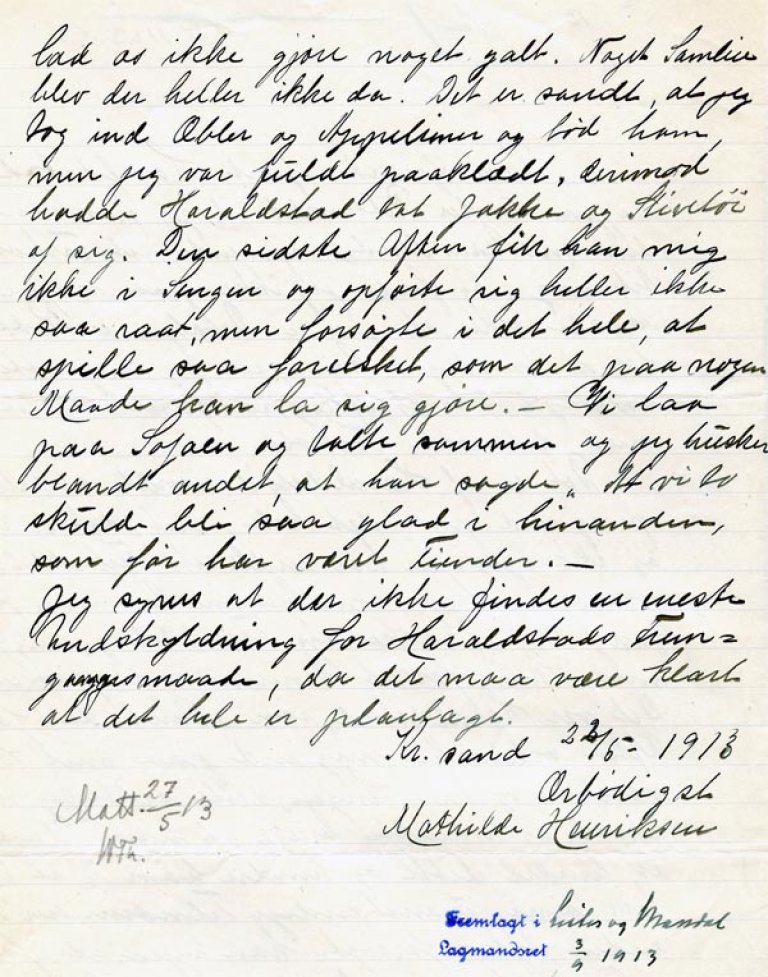 lad os ikke gjøre noget galt. Noget Samleie
blev der heller ikke da. Det er sandt, at jeg
tog ind Æbler og Appelsiner og bød ham,
men jeg var fuldt paaklædt, derimod
hadde Haraldstad tat Jakke og Stivetöi
af sig. Den sidste Aften fik han mig
ikke i Sengen og opførte sig heller ikke
saa raat, men forsøgte i det hele, at
spille saa forelsket, som det paa nogen
Maade kan la sig gjøre. — Vi laa
paa Sofaen og talte sammen og jeg husker
blandt andet, at han sagde „ At vi to
skulde bli saa glad i hinanden,
som før har været Fiender. —
Jeg synes at der ikke findes en eneste
Undskyldning for Haraldstads Frem=
gangsmaade, da det maa være klart
at det hele er planlagt.
Kr. sand 22/5- 1913
Ærbødigst
Mathilde Henriksen
Mott. 27/5 13
WTh.
Fremlagt i Lister og Mandal
Lagmandsret 3/9 1913